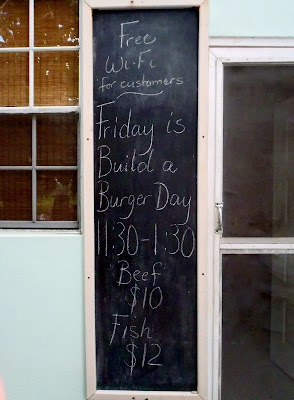 Free
Wi-Fi
for customers
Friday is
Build a
Burger Day
11:30-1:30
Beef
$10
Fish
$12